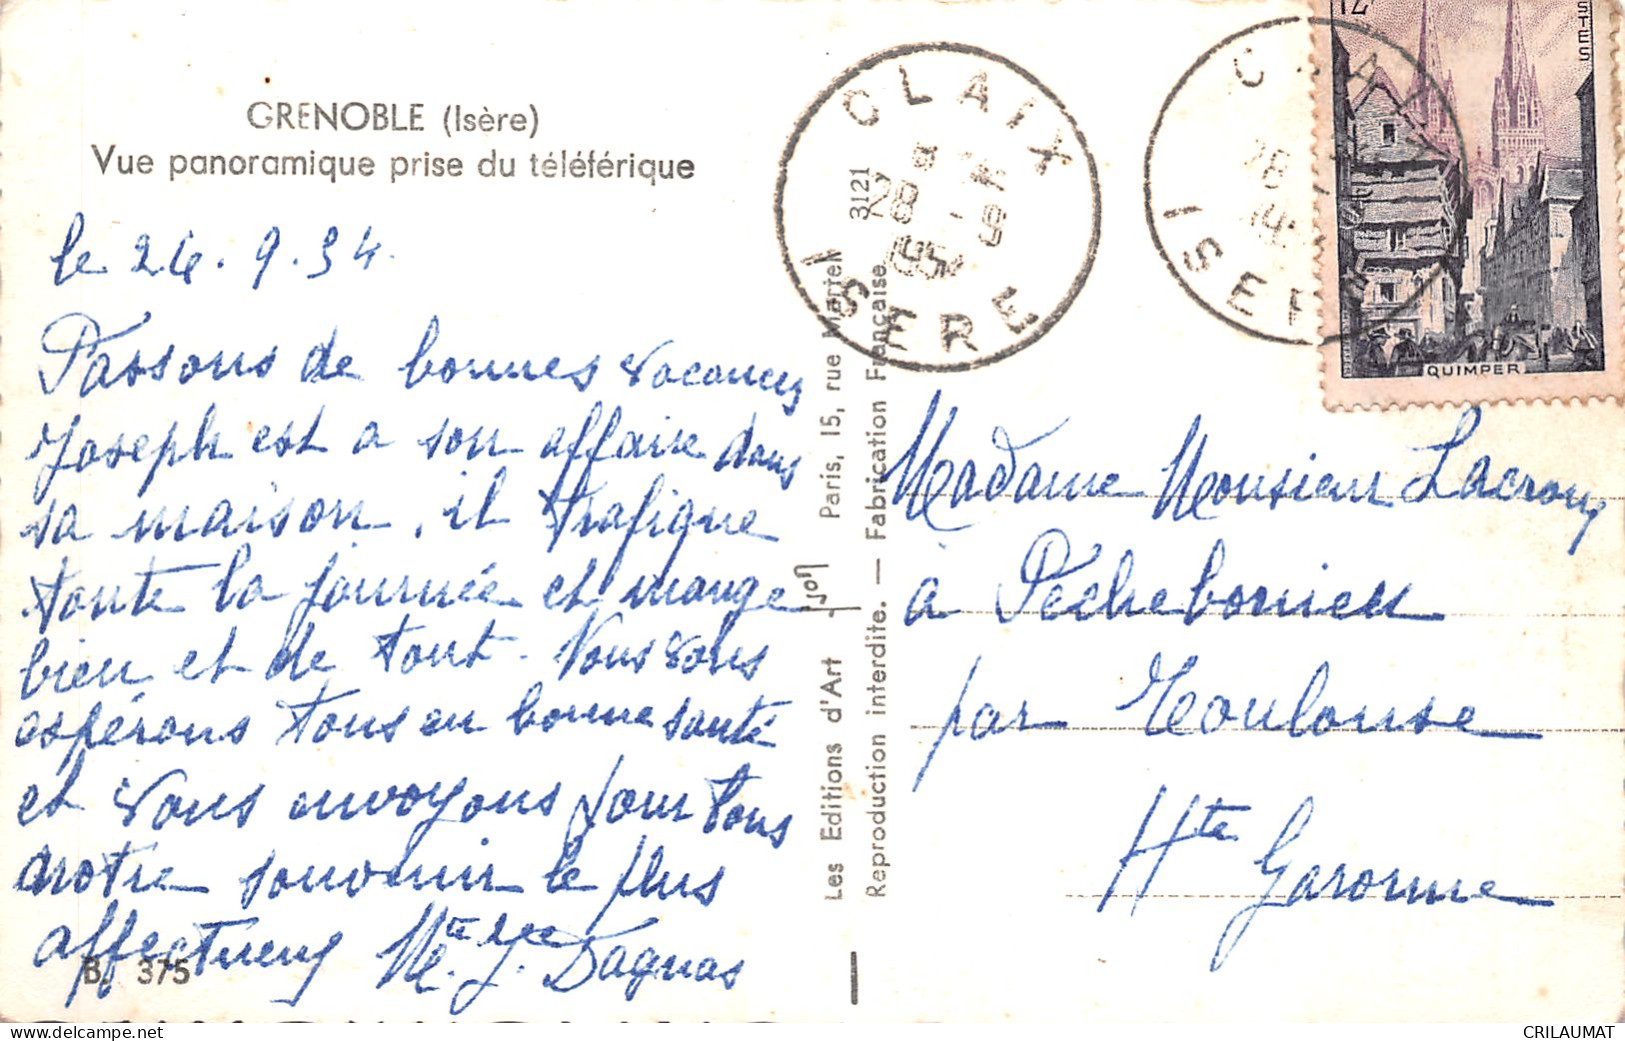 GRENOBLE (Isère)
Vue panoramique prise du téléférique
le 26.9.54.
Passons de bonnes vacances
Joseph est a son affaire dans
sa maison, il trafique
toute la journée et mange
bien et de tout. Vous
espérons tous en bonne santé
et vous envoyons pour tous
notre souvenir le plus
affectueux
Dagnas
B. 375
Les Editions d'Art - Yvon Paris, 15, rue Martel 3121
Reproduction interdite. — Fabrication Française
CLAIX
28 -9
1954
ISERE
CLAIX
28
195
ISERE
12F
POSTES
QUIMPER
Madame Monsieur Lacroux
à Pechebonnieu
par Toulouse
Hte Garonne
www.delcampe.net
CRILAUMAT